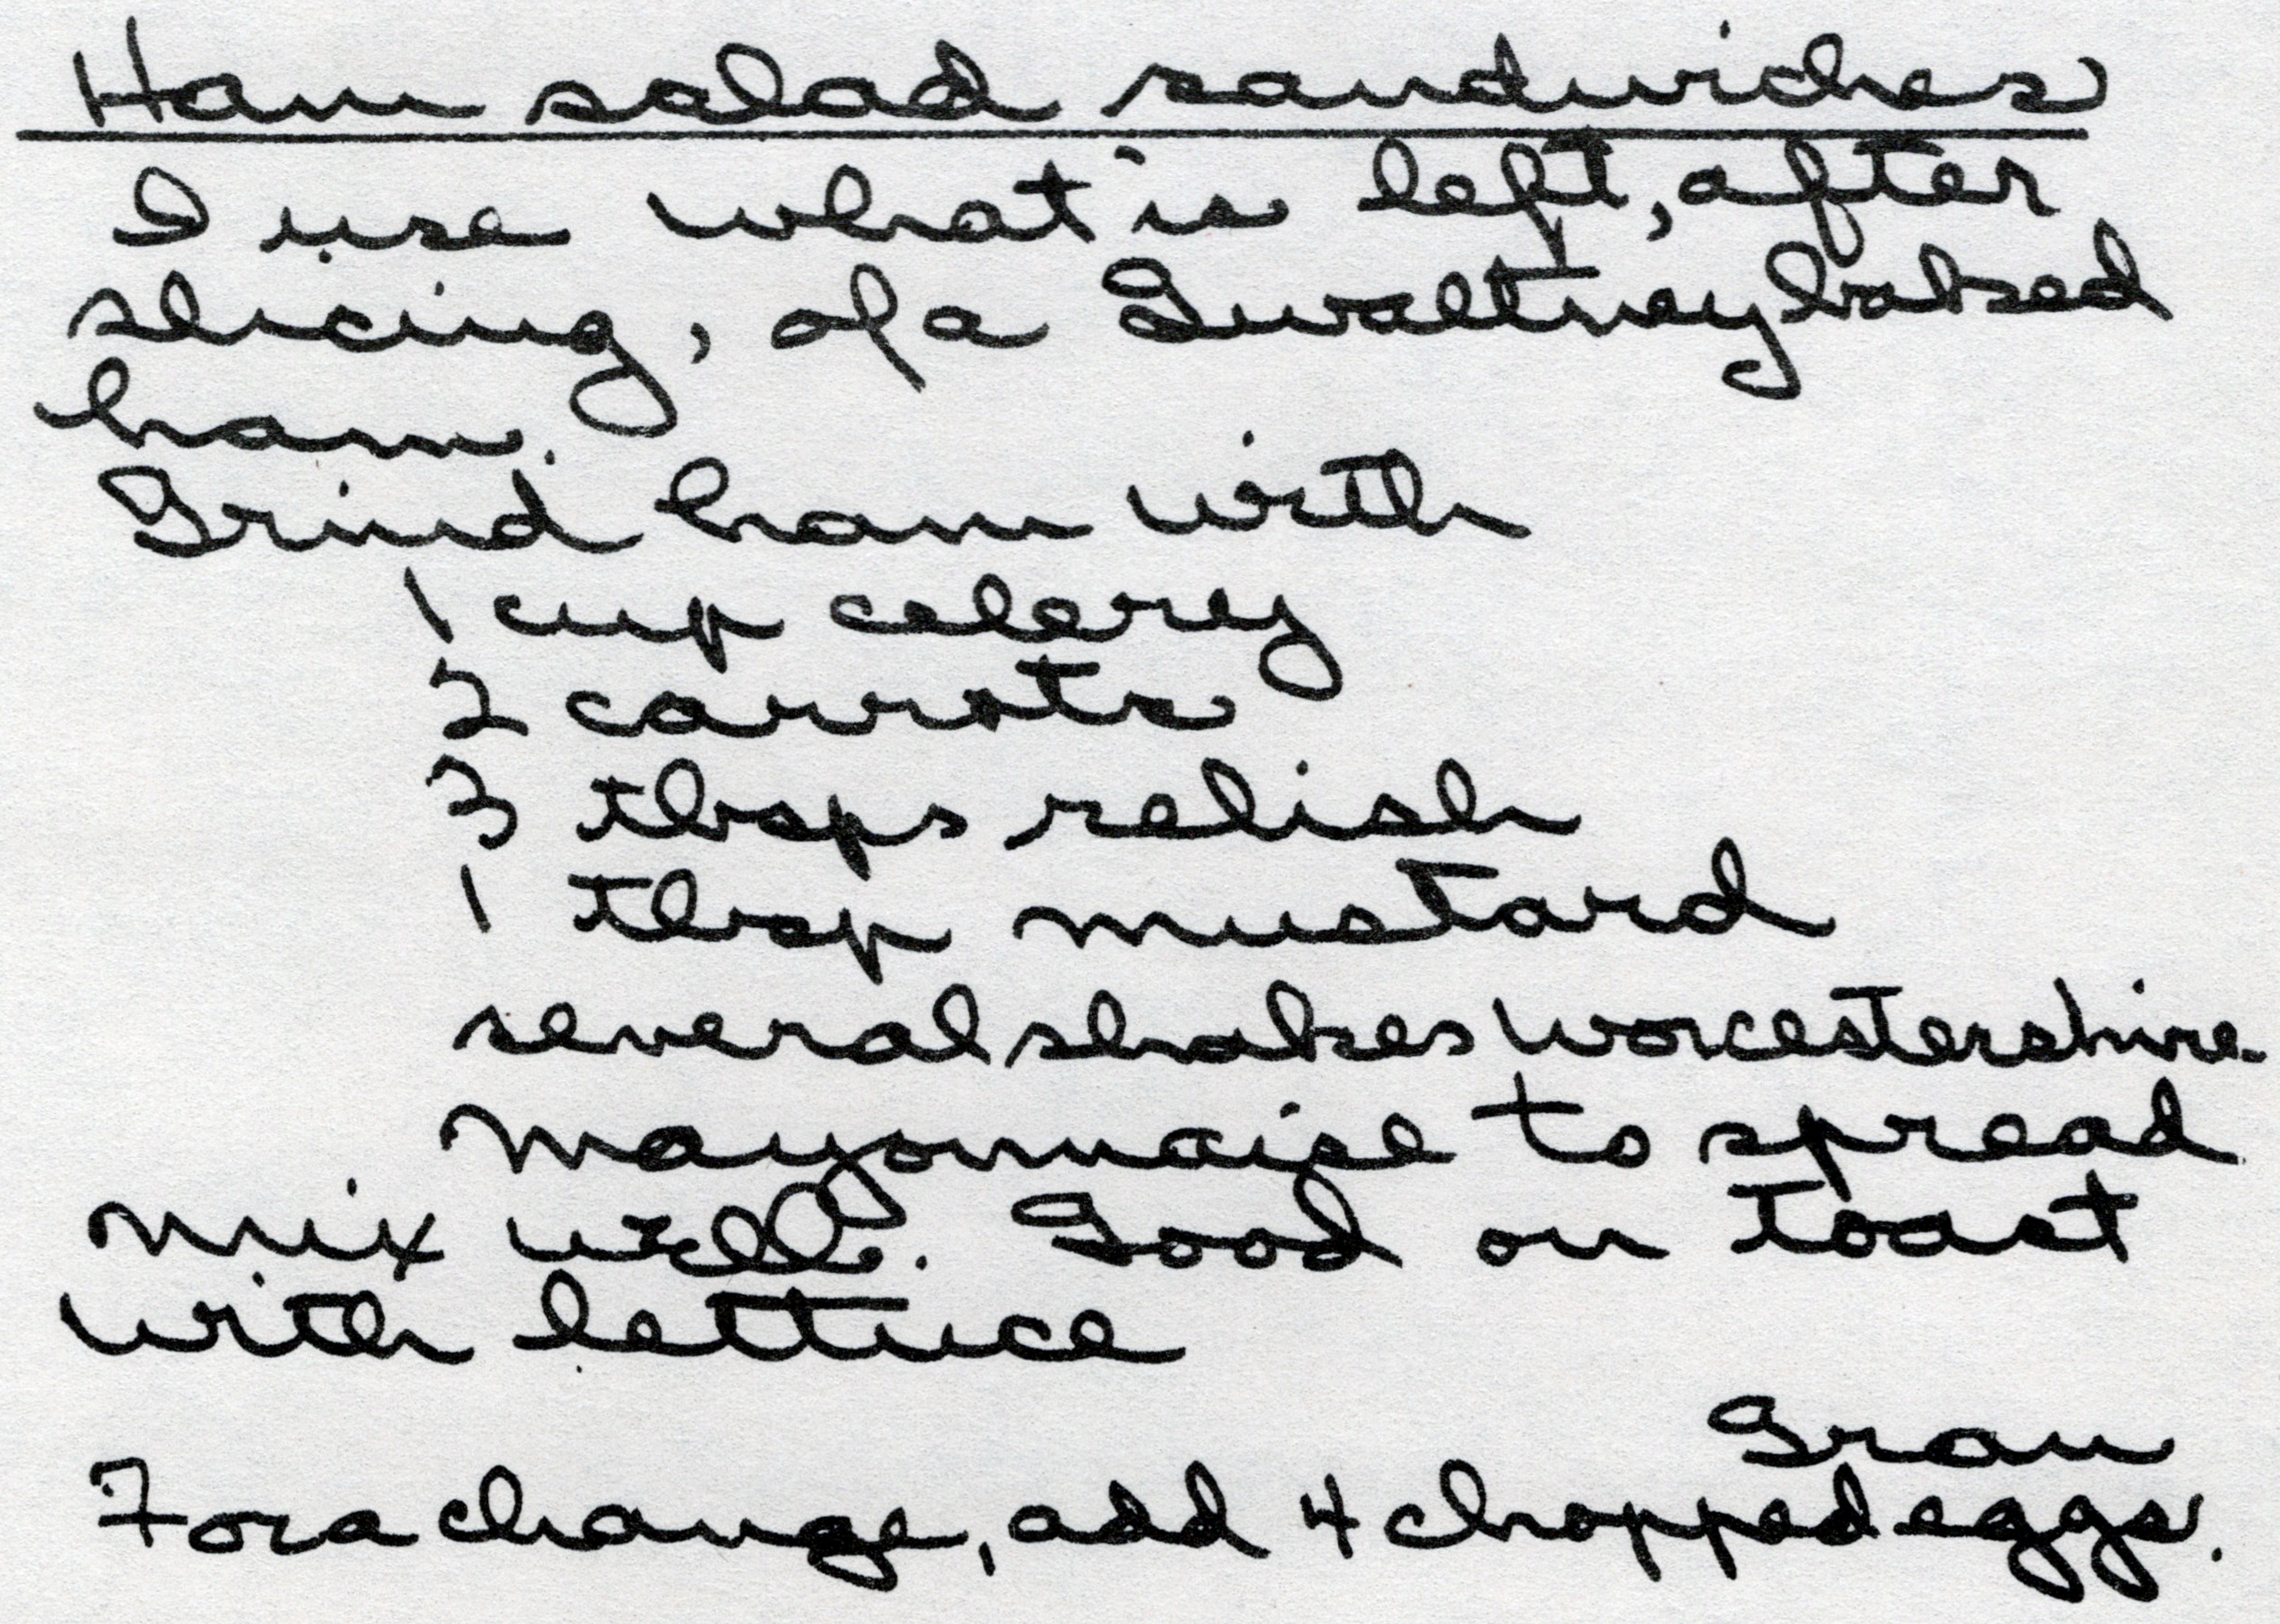 Ham salad sandwiches
I use what is left, after
slicing, of a Gwaltney baked
ham.
Grind ham with
1 cup celery
2 carrots
3 tbsps relish
1 tbsp mustard
several shakes worcestershire
mayonnaise to spread
mix well. Good on toast
with lettuce
Gran
For a change, add 4 chopped eggs.